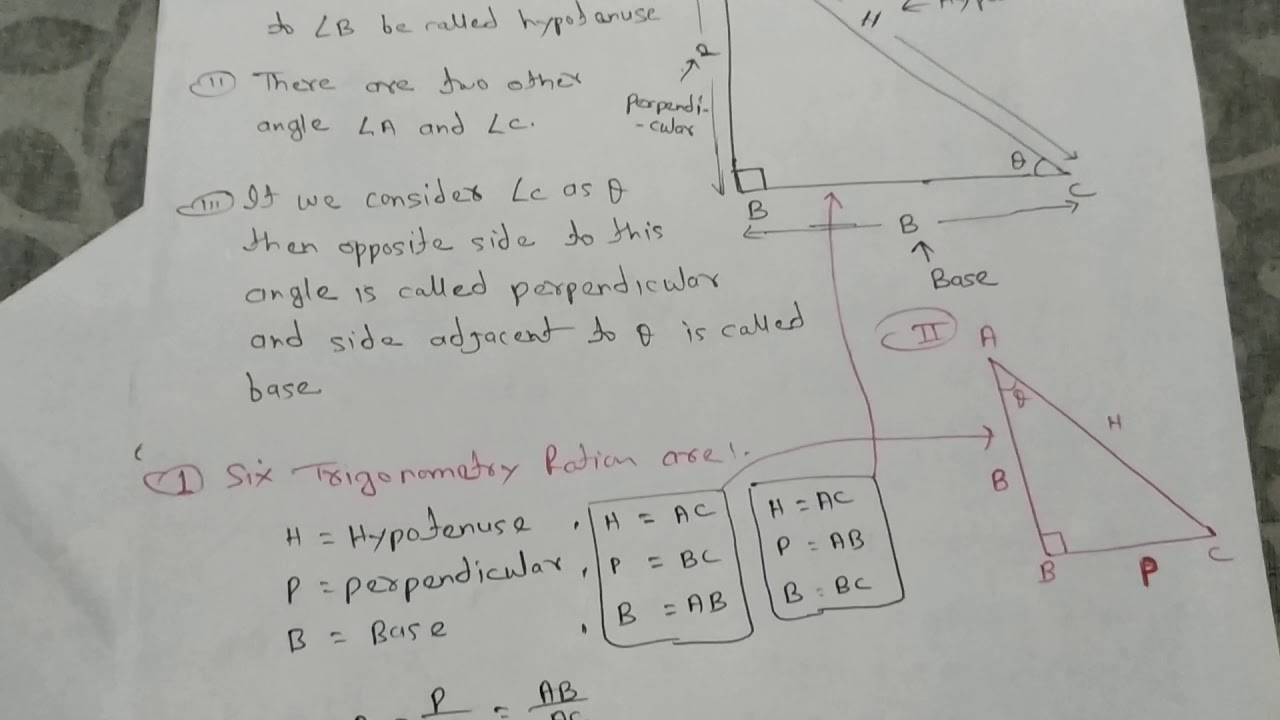 to ∠B be called hypotenuse
(ii) There are two other
angle ∠A and ∠C.
(iii) If we consider ∠C as θ
then opposite side to this
angle is called perpendicular
and side adjacent to θ is called
base
H
Perpendi-
-cular
θ
B
C
B
Base
II
A
θ
H
B
B
P
C
(I) Six Trigonometry Ration are!.
H = Hypotenuse , H = AC
P = perpendicular , P = BC
B = Base , B = AB
H = AC
P = AB
B = BC
P = AB